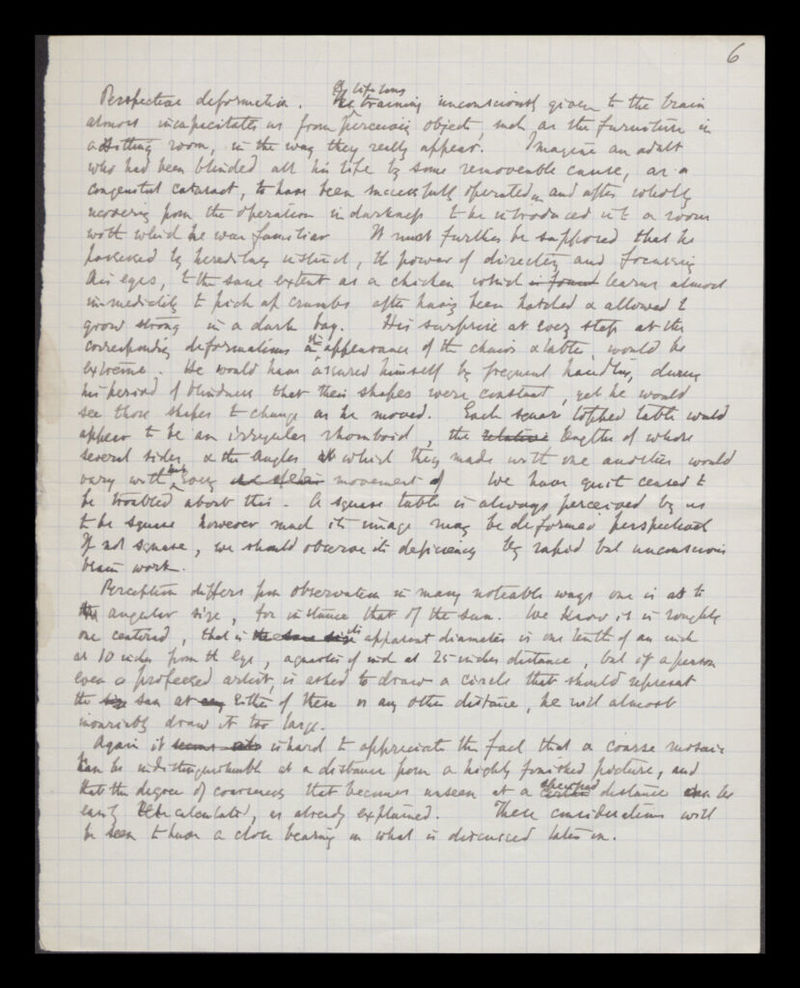 6
Perspective deformation. The life long training unconsciously given to the brain
almost incapacitates us from perceiving objects, such as the furniture in
a sitting room, in the way they really appear. Imagine an adult
who had been blinded all his life by some removeable cause, as a
congenital cataract, to have been successfully operated on and after wholly
recovering from the operation in darkness to be introduced into a room
with which he was familiar It must further be supposed that he
possessed by hereditary instinct, the power of directing and focussing
his eyes, to the same extent as a chicken which is found learns almost
immediately to pick up crumbs after having been hatched & allowed to
grow strong in a dark bag. His surprise at every step at the
corresponding deformations in the appearance of the chairs & table, would be
extreme. He would have assured himself by frequent handling, during
his period of blindness that their shapes were constant, yet he would
see those shapes to change as he moved. Each square topped table would
appear to be an irregular rhomboid, the relative lengths of whose
several sides, & the angles at which they made with one another would
vary with his every movement of We have quite ceased to
be troubled about this. A square table is always perceived by us
to be square however much its image may be deformed perspectively
If not square, we should observe its deficiency by rapid but unconscious
brain work.
Perception differs from observation in many noteable ways one is as to
the angular size, for instance that of the sun. We know it is roughly
one , that is the same size its apparent diameter is one tenth of an inch
at 10 inches from the eye, a quarter of inch at 25 inches distance, but if a person
even a professed artist, is asked to draw a circle that should represent
the size sun at any either of these or any other distance, he will almost
invariably draw it too large.
Again it seems is hard to appreciate the fact that a coarse mosaic
can be indistinguishable at a distance from a highly finished picture, and
that the degree of coarseness that becomes unseen at a certain specified distance can be
easily calculated, as already explained. These considerations will
be seen to have a close bearing on what is discussed later on.